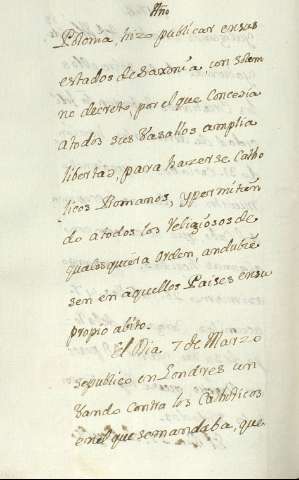 Año
Polonia, hizo publicar en sus
estados de Saxonia, con solem
no decreto, por el que Concedia
atodos sus Vasallos amplia
libertad, para hazerse Catho
licos Romanos, y permitien
do atodos los Religiosos de
qualosquiera Orden, andubie
sen en aquellos Paises en su
propio abito.
El Dia 7 de Marzo
sepublico en Londres un
Vando Contra los Catholicos
en el que se mandaba, que